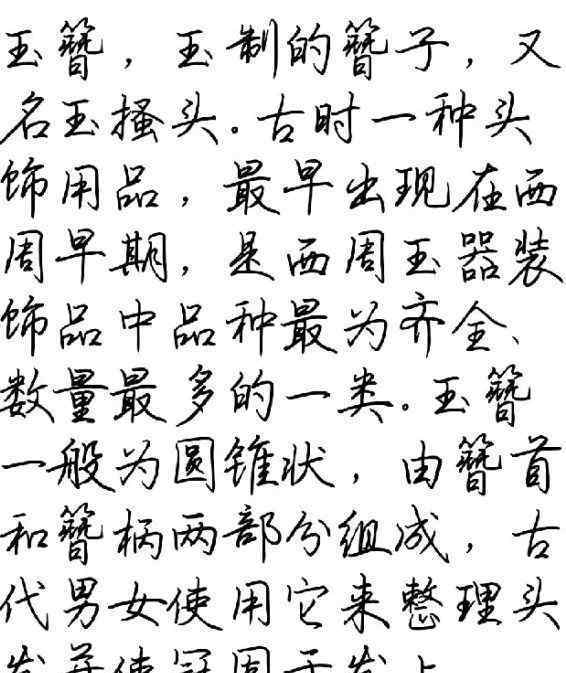 玉簪，玉制的簪子，又
名玉搔头。古时一种头
饰用品，最早出现在西
周早期，是西周玉器装
饰品中品种最为齐全、
数量最多的一类。玉簪
一般为圆锥状，由簪首
和簪柄两部分组成，古
代男女使用它来整理头
发并使冠固于发上